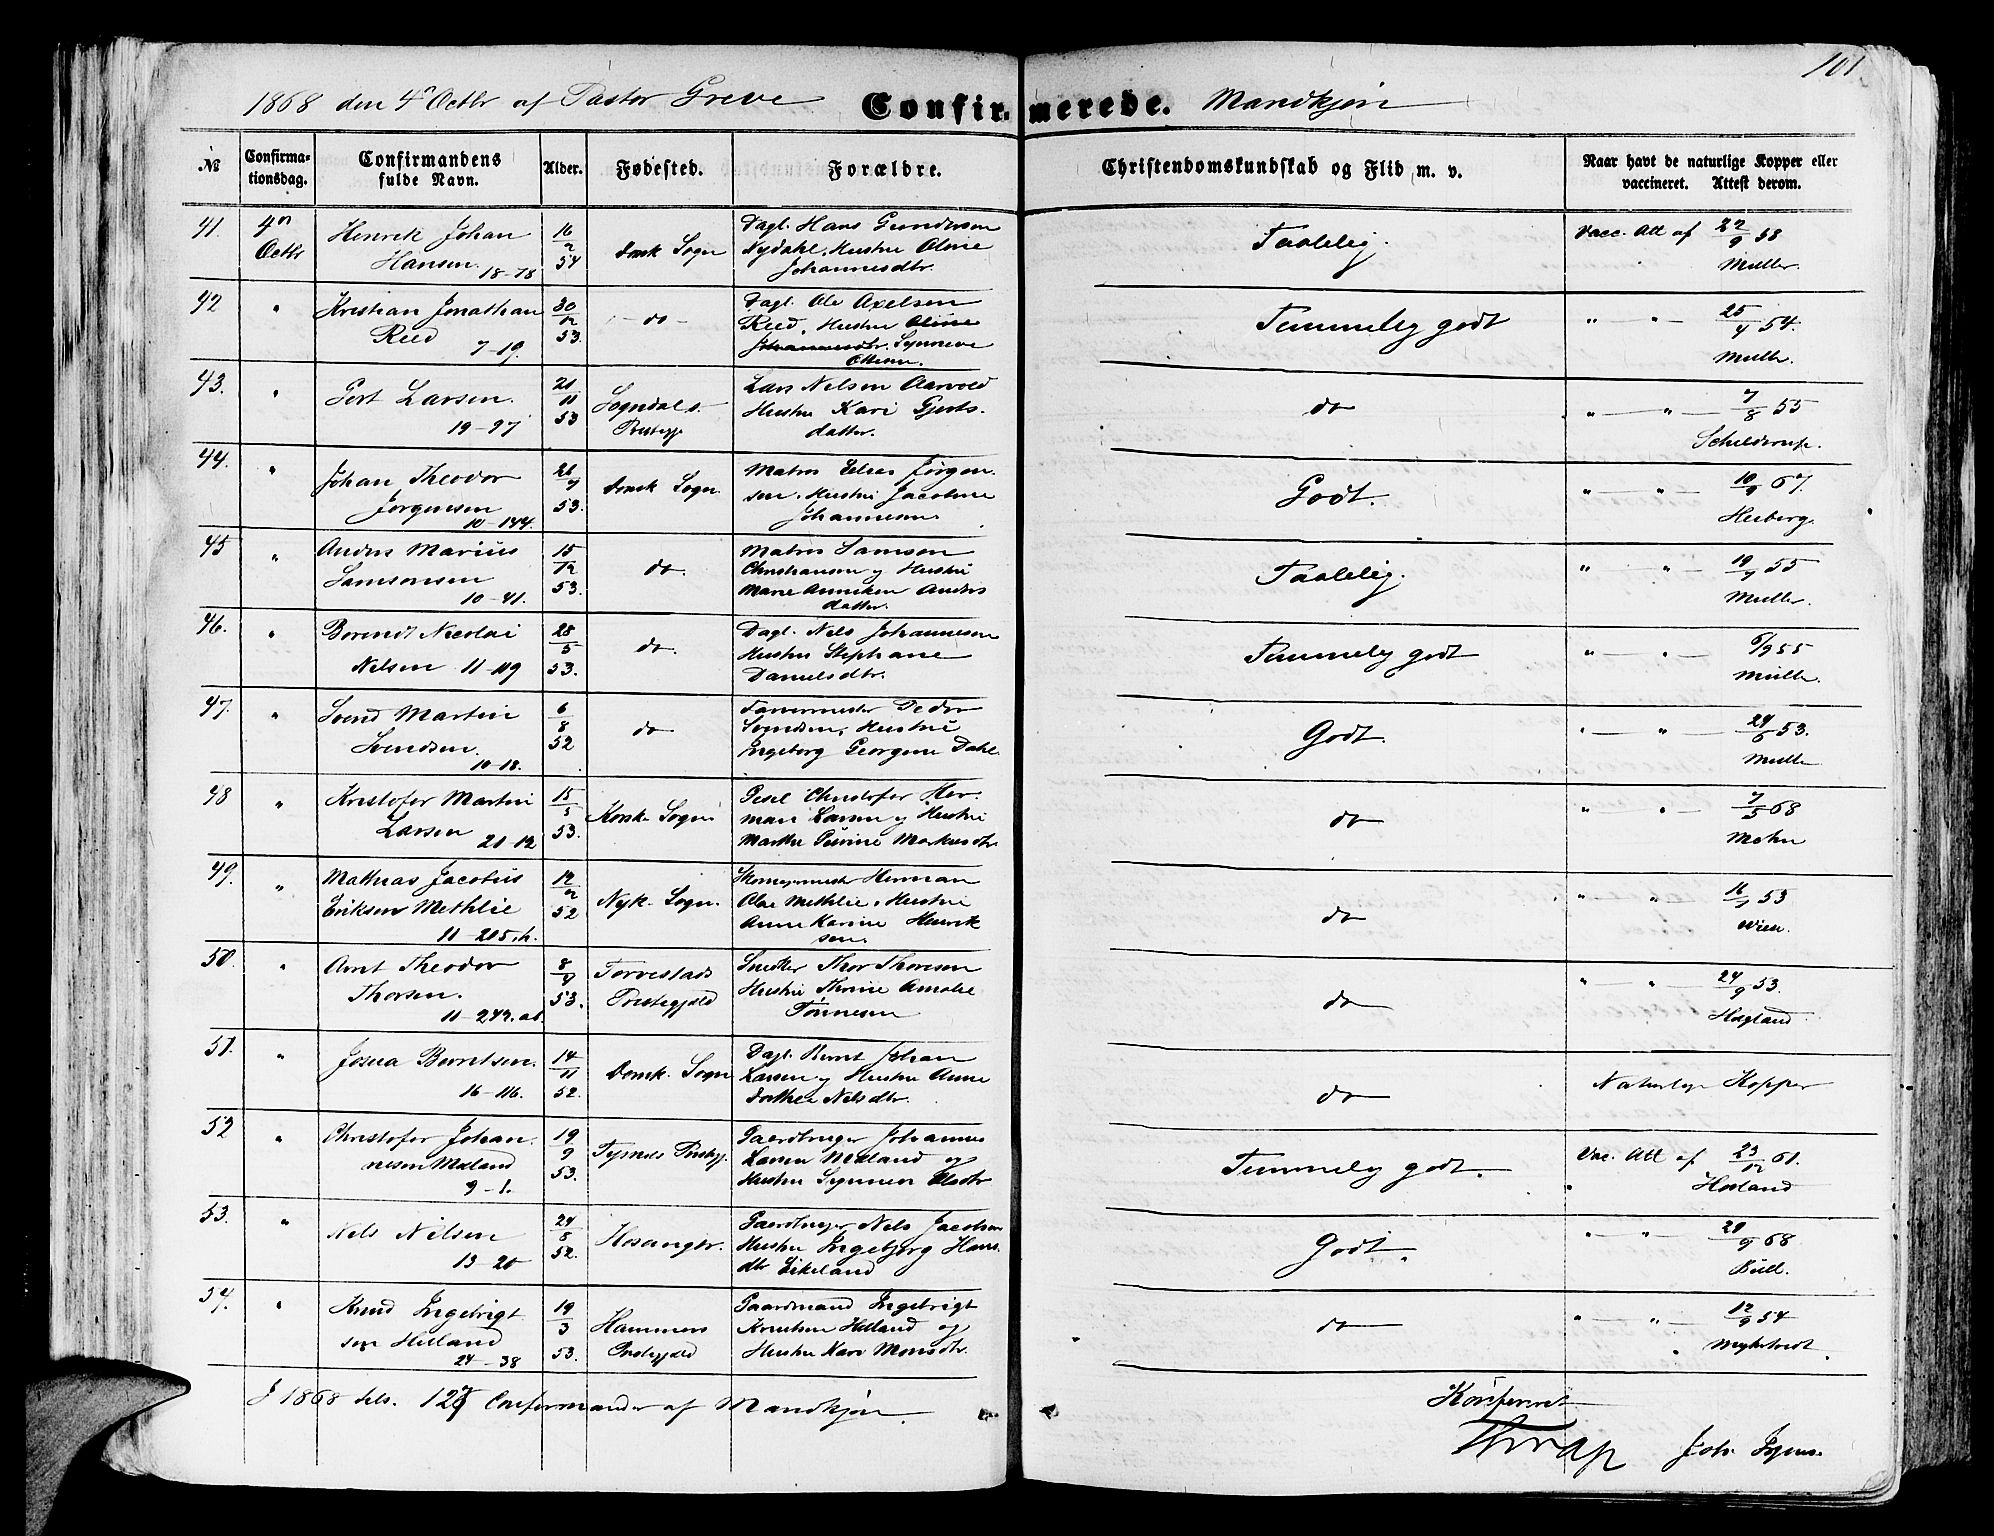 101
1868 den 4de Octbr af Pastor Greve Confirmerede. Mandkjøn
No Confirma-tionsdag. Confirmandens fulde Navn. Alder. Fødested. Forældre. Christendomskundskab og Flid m. v. Naar havt de naturlige Kopper eller vaccineret. Attest derom.
41. 4de Octbr Henrik Johan 16/2 54 Domk Sogn Dagl. Hans Gundersen Taalelig. Vacc. Att af 22/9 58
Hansen 18-78 Nydahl, Hustru Oline Müller.
Johannesdtr.
42 " Kristian Jonathan 30/12 53 do Dagl. Ole Axelsen Temmelig godt " " 25/4 54.
Reed 7-19. Reed, Hustru Müller.
Synneve
Ottesen
43. " Gert Larsen. 21/11 53 Sogndals Lars Nilsen Aarvold do " " 7/8 55
19-97 Prestegj Hustru Kari Gjerts- Schelderup.
datter.
44. " Johan Theodor 26/9 53. Domk Sogn. Matros Elias Jørgen- Godt. " " 10/9 67.
Jørgensen 10-144. sen, Hustru Jacobine Heiberg.
Johannesen
45 " Anders Marius 15/12 53. do. Matros Samson Taalelig. " " 19/7 55
Samsonsen 10-41. Christiansen og Hustru Müller.
Marie Anniken Anders
datter.
46. " Berendt Nicolai 28/5 53. do. Dagl. Nils Johannesen Temmelig godt " " 6/9 55
Nilsen 11-119 Hustru Stephane Müller
Danielsdtr.
47. " Svend Martin 6/8 52 do Peder Godt. " " 24/6 53.
Svendsen. 10-18. Svendsen, Hustru Müller
Ingeborg Georgine Dahl
48 " Kristofer Martin 15/5 53. Korsk. Sogn Pesel Christofer Her- do " " 7/5 68
Larsen 21-12 man Larsen og Hustru Mohn
Marthe Gurine Markusdtr.
49. " Mathias Jacobus 12/2 52 Nyk. Sogn. Skomagermester Herman do " " 16/7 53
Eriksen Methlie Olae Methlie, Hustru Wien.
11-205.h. Anne Karine Henrik
sen.
50. " Arnt Theodor 8/9 53. Torvestads Snedker Thor Thorsen do " " 24/9 53.
Thorsen. 11-242. ab. Prestegjeld Hustru Amalie Hegland
Tønnesen
51. " Josua Berntsen. 14/11 52. Domk. Sogn Dagl. Bernt Johan do Naturlige Kopper
16-116. Larsen og Hustru Anne
Dorthea Nilsdtr.
52 " Christofer Johan- 19/9 53. Tysnes Prestegj. Gaardbruger Johannes Temmelig godt. Vac. Att af 23/12 61.
nesen Meland Larsen Meland og Hovland
9-1. Hustru Synneve Olsdtr
53. " Nils Nilsen 24/5 52. Hosanger. Gaardbruger Nils Jacobsen Godt. " " 29/9 68
13-20 Hustru Ingebjørg Hans- Büll.
dtr Eikeland
54. " Knud Ingebrigt 19/3 53. Hammers Gaardmand Ingebrigt do " " 12/9 54
sen Helland Prestegjeld Knudsen Helland og Myhrstedt
24-38 Hustru Kari Monsdtr.
I 1868 Confirmander af Mandkjøn. Konfereret
Thrap Joh.